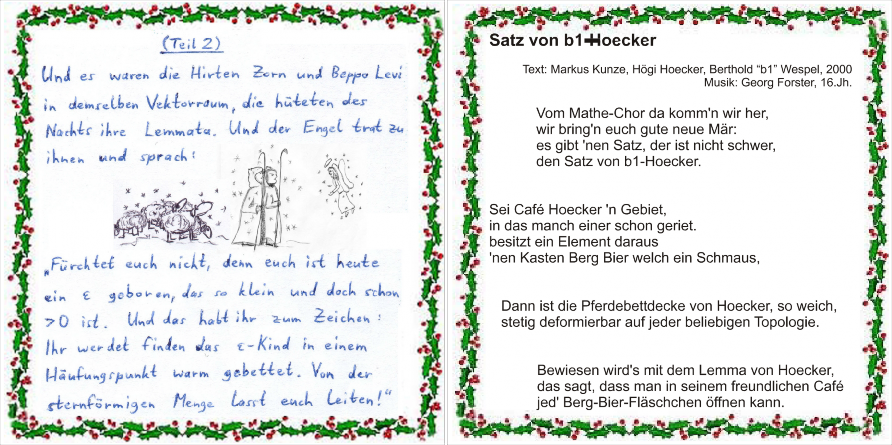 (Teil 2)
Und es waren die Hirten Zorn und Beppo Levi
in demselben Vektorraum, die hüteten des
Nachts ihre Lemmata. Und der Engel trat zu
ihnen und sprach:
„Fürchtet euch nicht, denn euch ist heute
ein ε geboren, das so klein und doch schon
>0 ist. Und das habt ihr zum Zeichen:
Ihr werdet finden das ε-Kind in einem
Häufungspunkt warm gebettet. Von der
sternförmigen Menge lasst euch leiten!“
Satz von b1-Hoecker
Text: Markus Kunze, Högi Hoecker, Berthold “b1” Wespel, 2000
Musik: Georg Forster, 16.Jh.
Vom Mathe-Chor da komm'n wir her,
wir bring'n euch gute neue Mär:
es gibt 'nen Satz, der ist nicht schwer,
den Satz von b1-Hoecker.
Sei Café Hoecker 'n Gebiet,
in das manch einer schon geriet.
besitzt ein Element daraus
'nen Kasten Berg Bier welch ein Schmaus,
Dann ist die Pferdebettdecke von Hoecker, so weich,
stetig deformierbar auf jeder beliebigen Topologie.
Bewiesen wird's mit dem Lemma von Hoecker,
das sagt, dass man in seinem freundlichen Café
jed' Berg-Bier-Fläschchen öffnen kann.